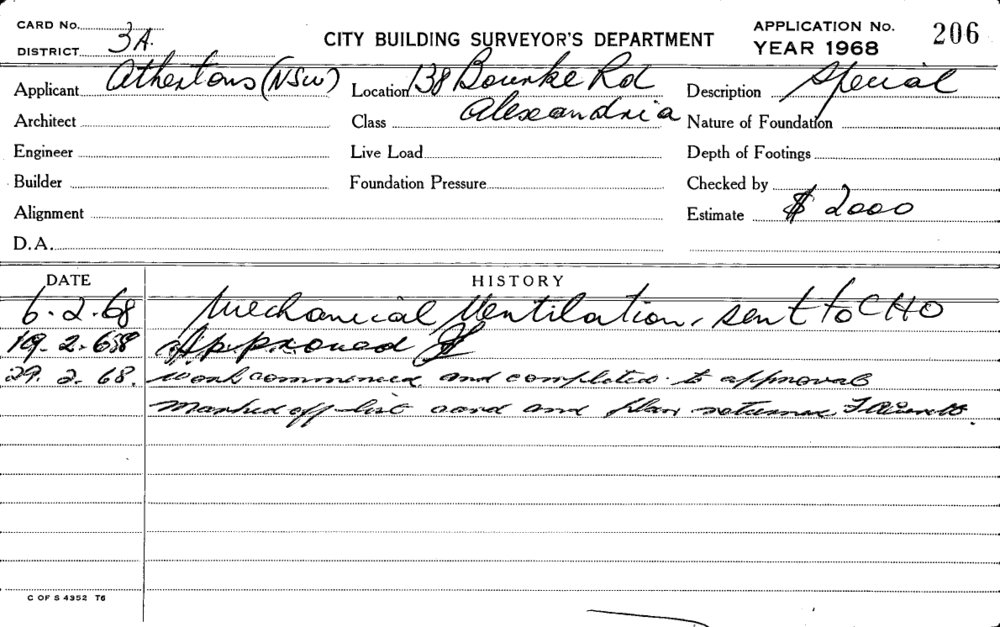 CARD No.
DISTRICT 3A.
CITY BUILDING SURVEYOR'S DEPARTMENT
APPLICATION No. 206
YEAR 1968
Applicant Athertons (NSW) Location 138 Bourke Rd Description Special
Alexandria
Architect Class Nature of Foundation
Engineer Live Load Depth of Footings
Builder Foundation Pressure Checked by
Alignment Estimate $ 2000
D.A.
DATE HISTORY
6.2.68 Mechanical Ventilation, sent to CHO
19.2.68 Approved
29.2.68. Work commenced and completed to approval
Marked off list card and plan returned
C OF S 4352 T6